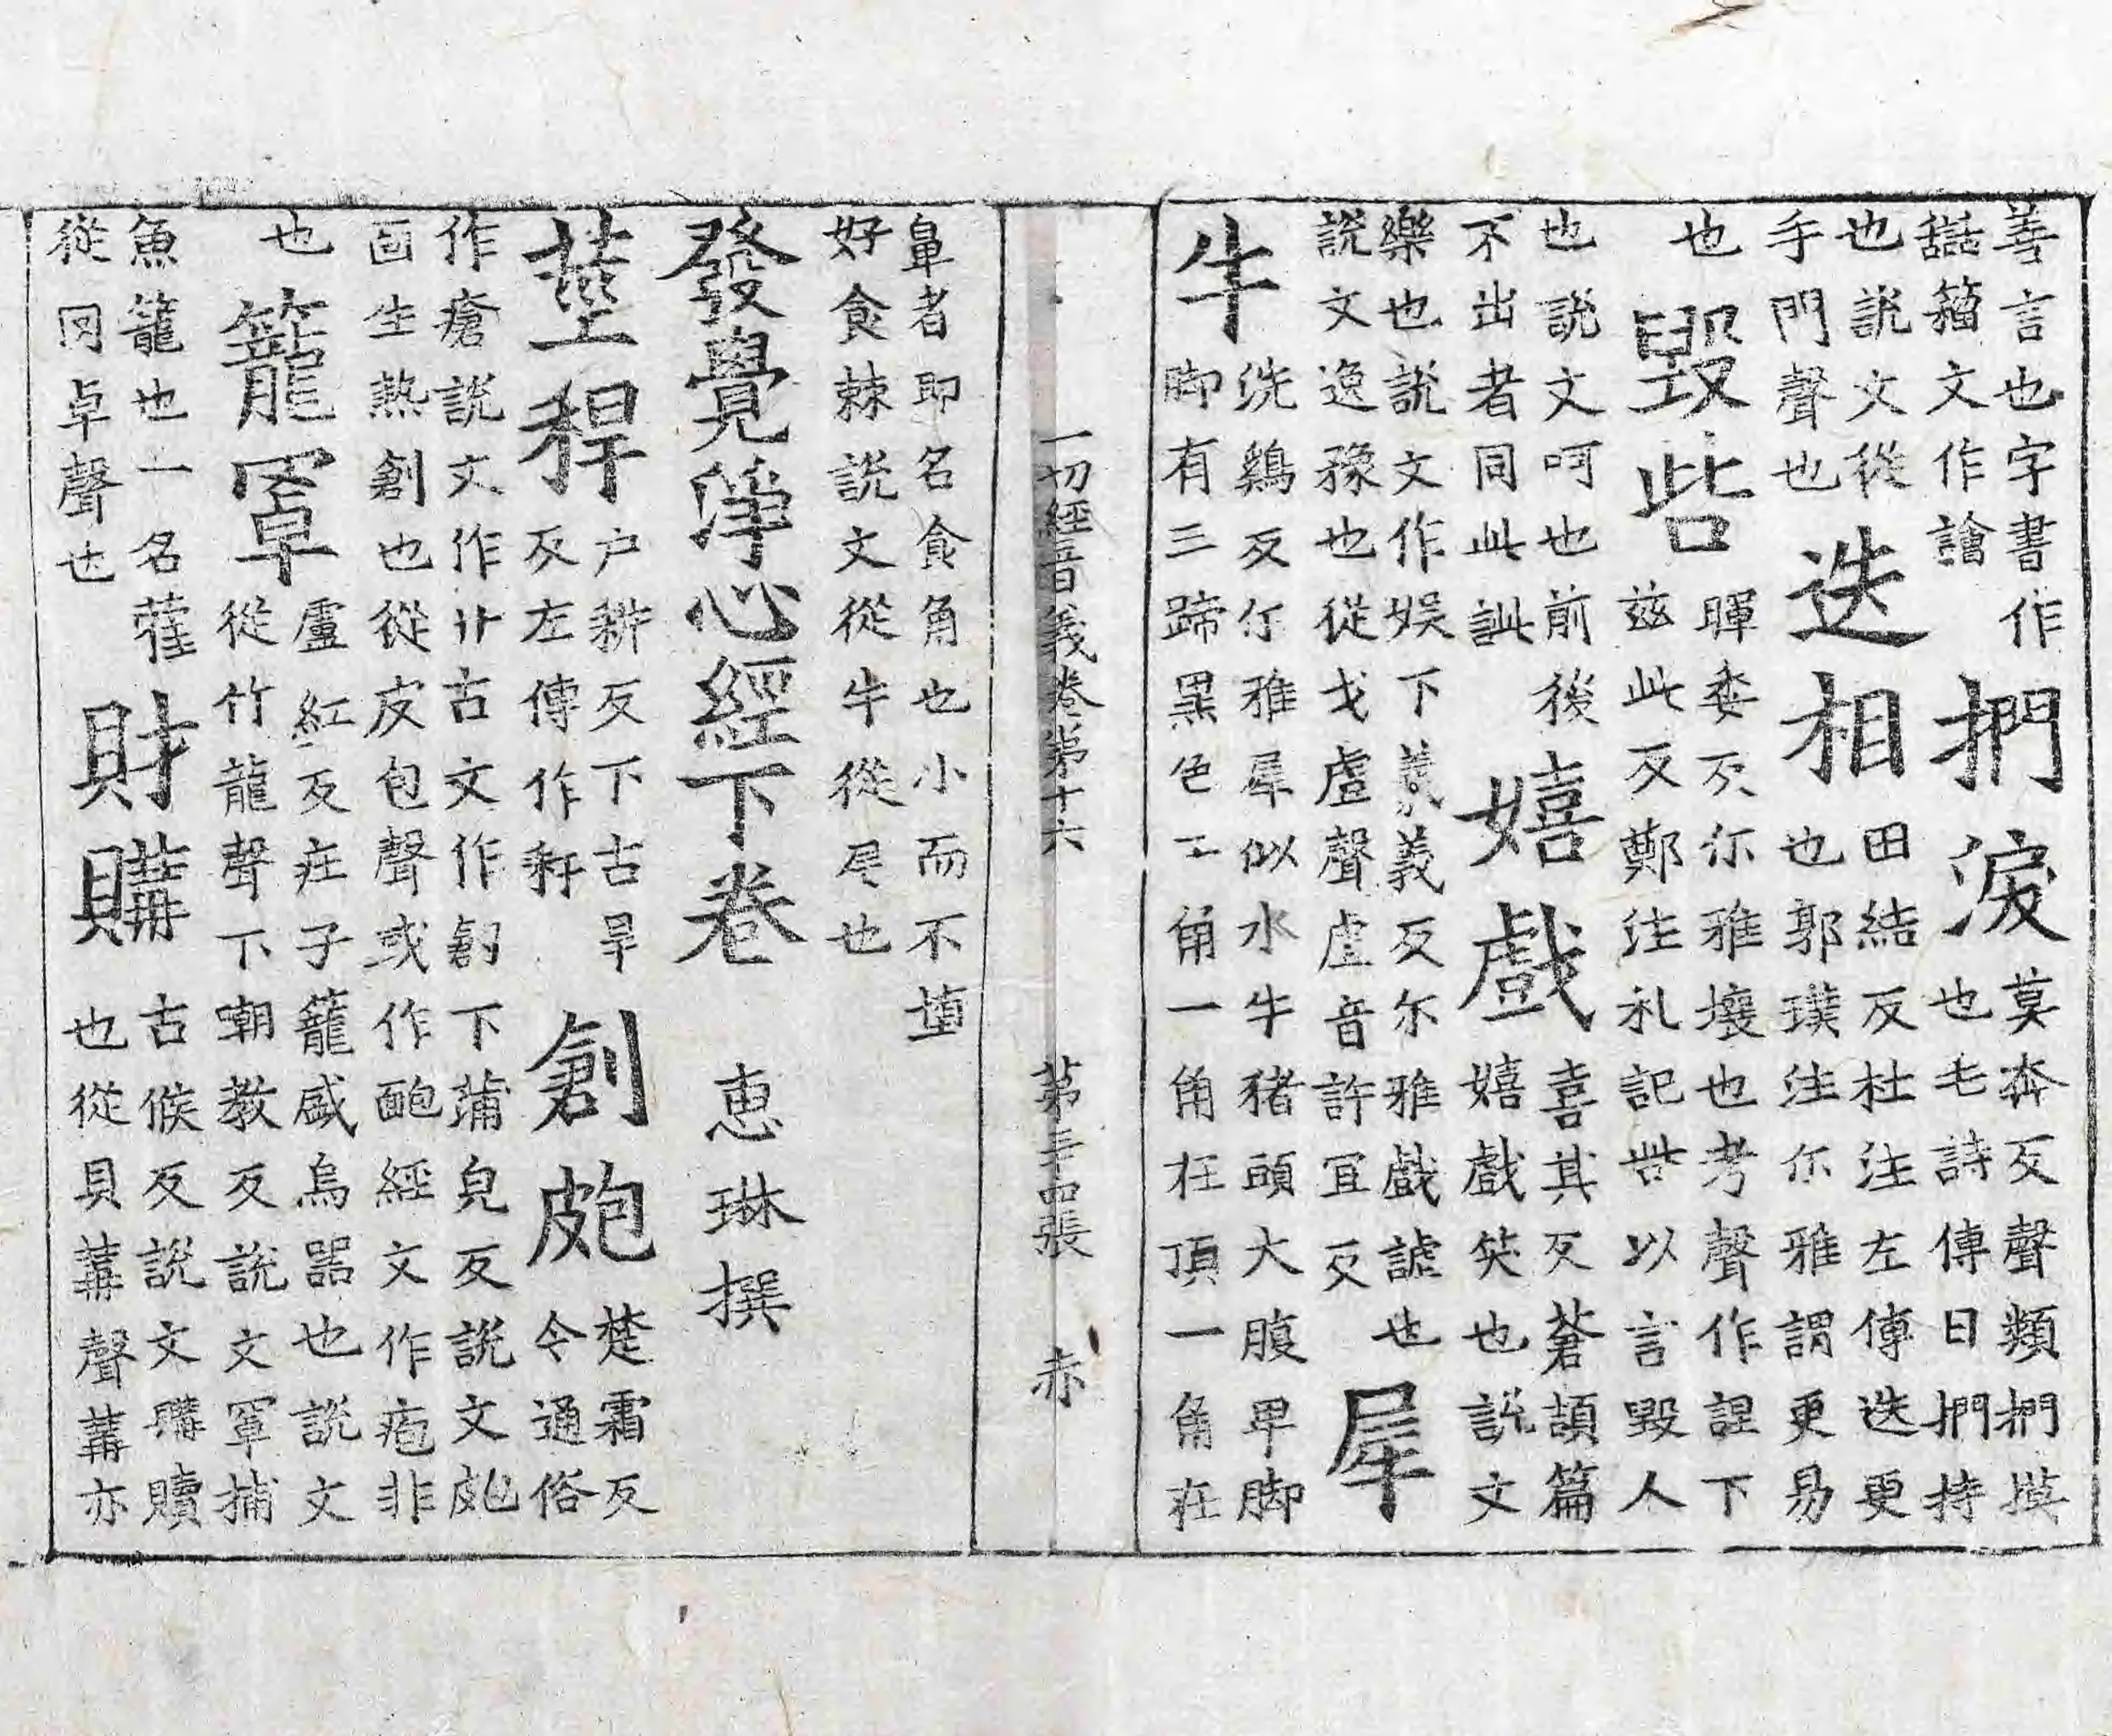 善言也字書作
譮籀文作譮
捫淚
莫奔反聲類捫摸
也毛詩傳曰捫持
也說文從
手門聲也
迭相
田結反杜注左傳迭更
也郭璞注尒雅謂更易
也
毀呰
暉委反尒雅壞也考聲作諻下
茲此反鄭注礼記呰以言毀人
也說文呵也前後
不出者同此訿
嬉戲
喜其反蒼頡篇
嬉戲笑也說文
樂也說文作娛下羲義反尔雅戲謔也
說文逸豫也從戈䖒聲䖒音許冝反
犀
牛
洗鷄反尒雅犀似水牛猪頭大腹卑脚
脚有三蹄黑色二角一角在頂一角在
一切經音義卷第十六 第三十四張 赤
鼻者即名食角也小而不橢
好食棘說文從牛從尾也
發覺淨心經下卷 惠琳撰
莖稈
户耕反下古旱
反左傳作秆
創皰
楚霜反
今通俗
作瘡說文作刅古文作剏下蒲皃反說文皰
面生熱創也從皮包聲或作靤經文作疱非
也
籠罩
盧紅反莊子籠盛鳥器也說文
從竹龍聲下嘲教反說文罩捕
魚籠也一名䉶
從罒卓聲也
財購
古候反說文購贖
也從貝冓聲冓亦